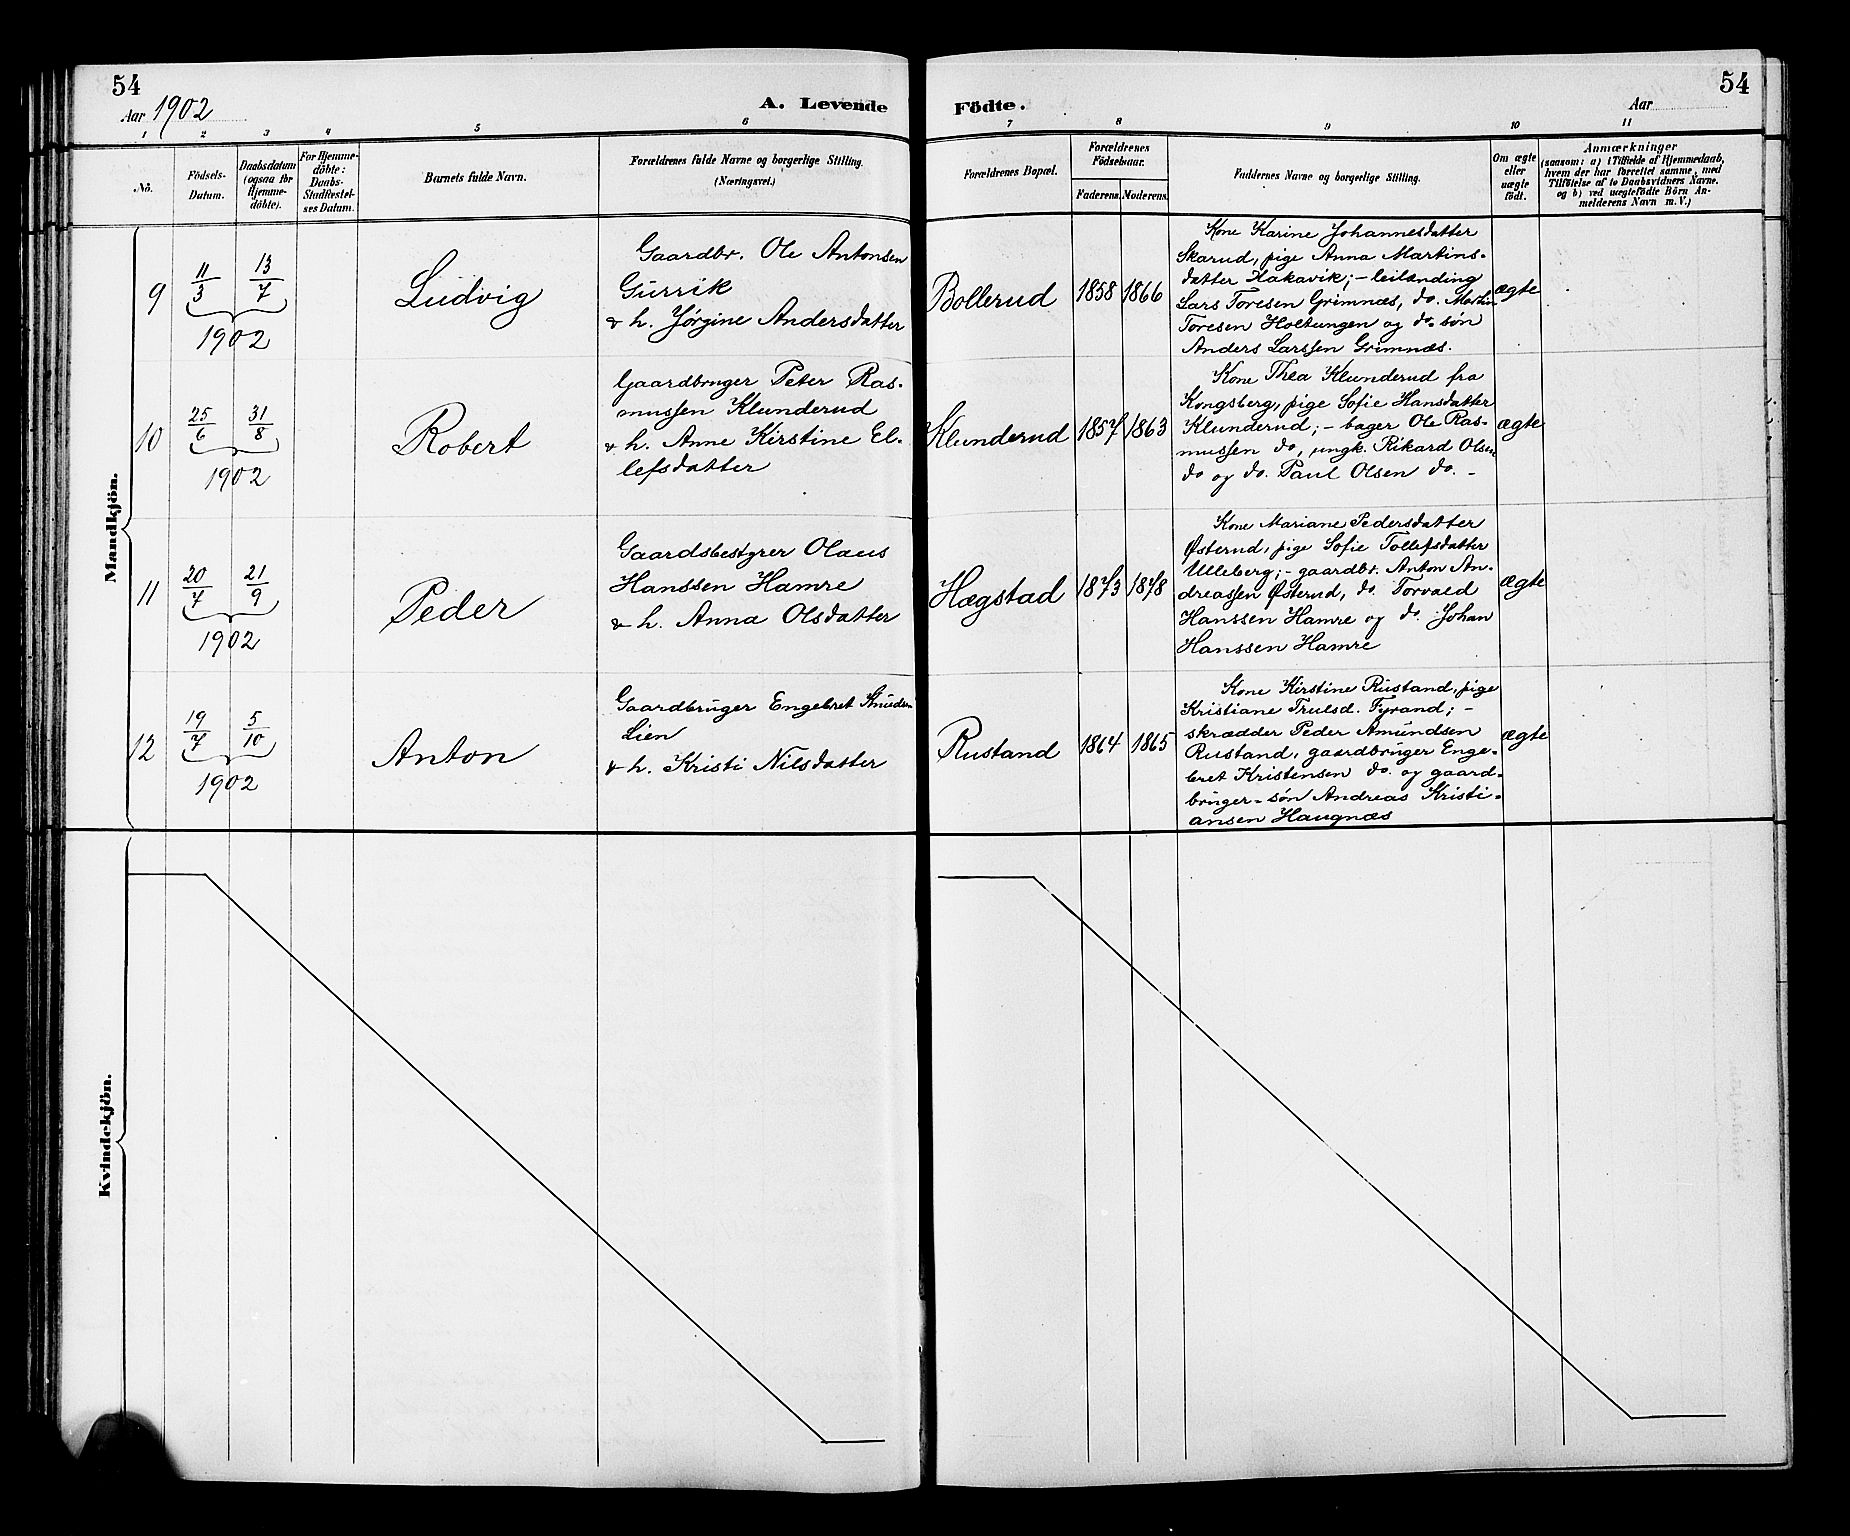 54
54
Aar 1902
A. Levende Födte.
Aar
1 2 3 4 5 6 7 8 9 10 11
No.
Födsels-
Datum.
Daabsdatum
(ogsaa för
Hjemme-
döbte).
For Hjemme-
döbte:
Daabs-
Stadfæstel-
ses Datum.
Barnets fulde Navn.
Forældrenes fulde Navne og borgerlige Stilling.
(Næringsvei.)
Forældrenes Bopæl.
Forældrenes
Födselsaar.
Faderens. Moderens.
Faddernes Navne og borgerlige Stilling.
Om ægte
eller
uægte
födt.
Anmærkninger
(saasom: a) i Tilfælde af Hjemmedaab,
hvem der har forrettet samme, med
Tilföielse af to Daabsvidners Navne,
og b) ved uægtefödte Börn An-
melderens Navn m. V.)
Mandkjön.
9
11/3 13/7
1902
Ludvig
Gaardbr. Ole Antonsen
Gurrik
& h. Jørgine Andersdatter
Bollerud
1858 1866
Kone Karine Johannesdatter
Skarud, pige Anna Martins-
datter Hakavik; - leilænding
Lars Toresen Grimnæs, do. Martin
Toresen Holtungen og do. søn
Anders Larssen Grimnæs.
ægte
10
25/6 31/8
1902
Robert
Gaardbruger Peter Ras-
mussen Klunderud
& h. Anne Kirstine El-
lefsdatter
Klunderud
1857 1863
Kone Thea Klunderud fra
Kongsberg, pige Sofie Hansdatter
Klunderud; - bager Ole Ras-
mussen do, ungk. Rikard Olsen
do og do. Paul Olsen do. -
ægte
11
20/7 21/9
1902
Peder
Gaardsbestyrer Olaus
Hanssen Hamre
& h. Anna Olsdatter
Hægstad
1873 1878
Kone Mariane Pedersdatter
Østerud, pige Sofie Tollefsdatter
Ulleberg; - gaardbr. Anton An-
dreassen Østerud, do. Torvald
Hanssen Hamre og do. Johan
Hanssen Hamre
ægte
12
19/7 5/10
1902
Anton
Gaardbruger Engebret Knudsen
Lien
& h. Kristi Nilsdatter
Rustand
1864 1865
Kone Kirstine Rustand, pige
Kristiane Trulsd. Fyrand; -
skrædder Peder Amundsen
Rustand, gaardbruger Enge-
bret Kristensen do. og gaard-
bruger-søn Andreas Kristi-
ansen Haugnæs
ægte
Kvindekjön.